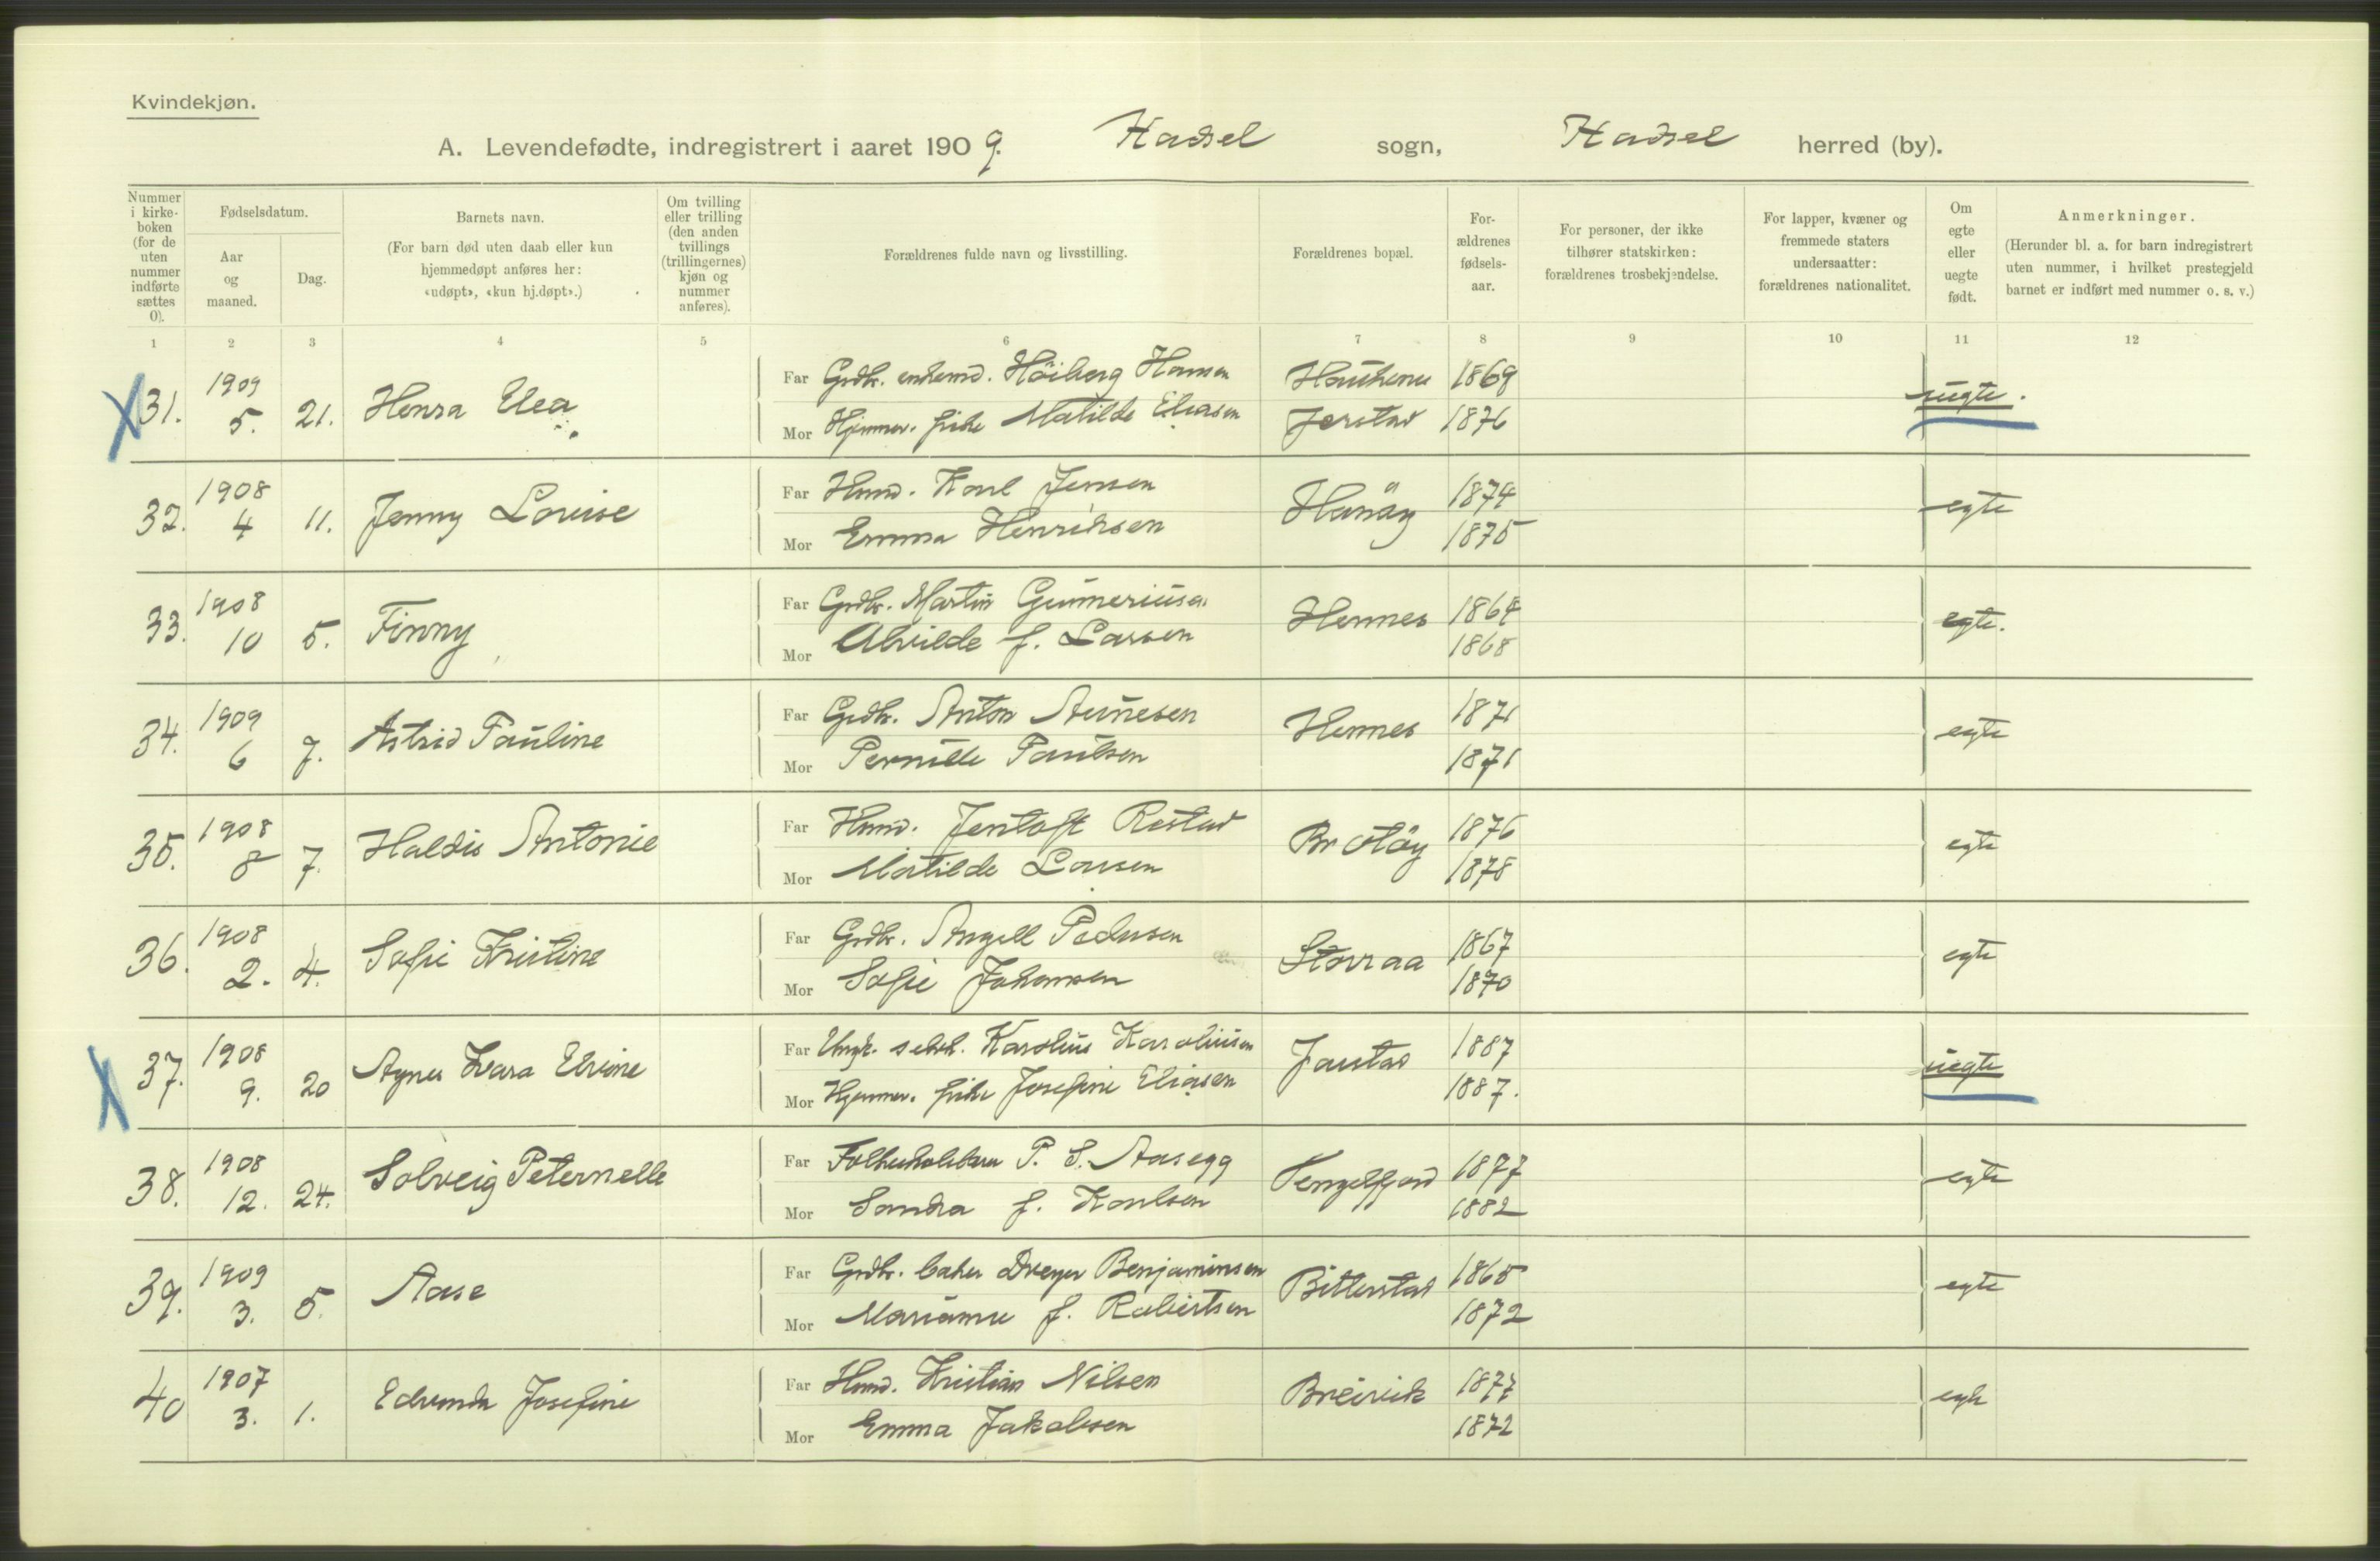 Kvindekjøn.
A. Levendefødte, indregistrert i aaret 1909. Hadsel sogn, Hadsel herred (by).
Nummer i kirke-boken (for de uten nummer indførte sættes 0).
Fødselsdatum.
Aar og maaned.
Dag.
Barnets navn.
(For barn død uten daab eller kun hjemmedøpt anføres her: «udøpt», «kun hj.døpt».)
Om tvilling eller trilling (den anden tvillings (trillingernes) kjøn og nummer anføres).
Forældrenes fulde navn og livsstilling.
Forældrenes bopæl.
For-ældrenes fødsels-aar.
For personer, der ikke tilhører statskirken: forældrenes trosbekjendelse.
For lapper, kvæner og fremmede staters undersaatter: forældrenes nationalitet.
Om egte eller uegte født.
Anmerkninger.
(Herunder bl. a. for barn indregistrert uten nummer, i hvilket prestegjeld barnet er indført med nummer o. s. v.)
1 2 3 4 5 6 7 8 9 10 11 12
31. 1909 5. 21. Honra Elea Far Grdbr. enkemd. Höiberg Hansen 1869 uegte.
Mor Hjemmev. pike Matilde Eliasen Jorstad 1876
32. 1908 4 11. Jenny Lovise Far Hmd. Karl Jensen Hanöy 1874 egte
Mor Emma Henriksen 1875
33. 1908 10 5. Finny Far Grdbr. Martin Gunneriusen Hennes 1864 egte.
Mor Alvilde f. Larsen 1868
34. 1909 6 7. Astrid Pauline Far Grdbr. Anton Aunesen Hennes 1871 egte
Mor Pernille Paulsen 1871
35. 1908 8 7. Haldis Antonie Far Hmd. Jentoft Restad Brotöy 1876 egte
Mor Matilde Larsen 1878
36. 1908 2. 4. Sofie Kristine Far Grdbr. Angell Pedersen Storraa 1867 egte
Mor Sofie Johansen 1870
37. 1908 9. 20 Agnes Zara Elvine Far Ungk. selvh. Karolius Karoliusen Jorstad 1887 uegte
Mor Hjemmev. pike Josefine Eliasen 1887.
38. 1908 12. 24. Solveig Peternelle Far P. S. Aasegg Tengelfjord 1877 egte
Mor Sandra f. Karlsen 1882
39. 1909 3. 5. Aase Far Grdbr. baker Dreyer Benjaminsen Bitterstad 1865 egte
Mor Marianne f. Robertsen 1872
40 1907 3. 1. Edvarda Josefine Far Hmd. Kristian Nilsen Breivik 1877 egte
Mor Emma Jakobsen 1872